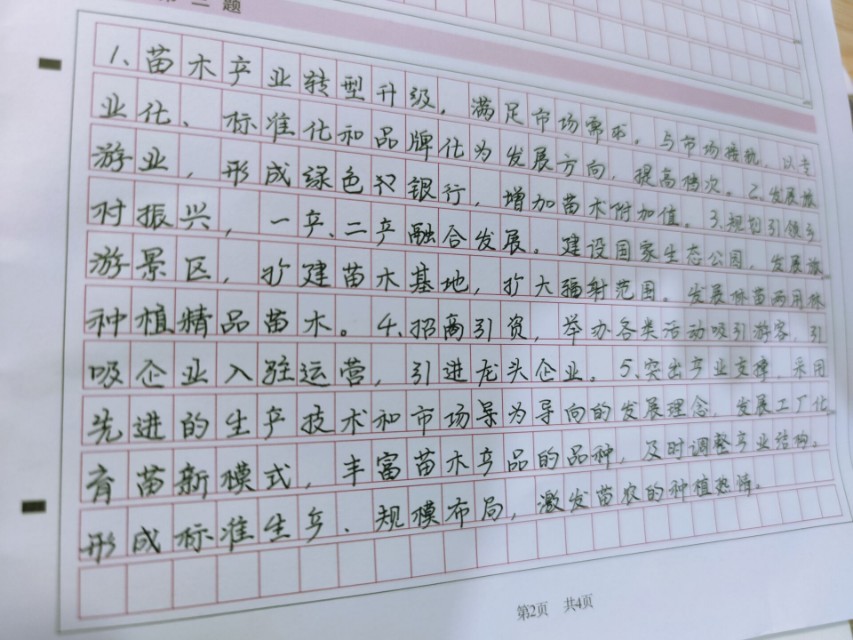 第二题
1、苗木产业转型升级，满足市场需求，与市场接轨，以专
业化、标准化和品牌化为发展方向，提高档次。2、发展旅
游业，形成绿色双银行，增加苗木附加值。3、规划引领乡
村振兴，一产、二产融合发展。建设国家生态公园，发展旅
游景区，扩建苗木基地，扩大辐射范围。发展林苗两用林
种植精品苗木。4、招商引资，举办各类活动吸引游客，引
吸企业入驻运营，引进龙头企业。5、突出产业支撑，采用
先进的生产技术和市场导为导向的发展理念，发展工厂化
育苗新模式，丰富苗木产品的品种，及时调整产业结构。
形成标准生乡、规模布局，激发苗农的种植热情。
第2页 共4页